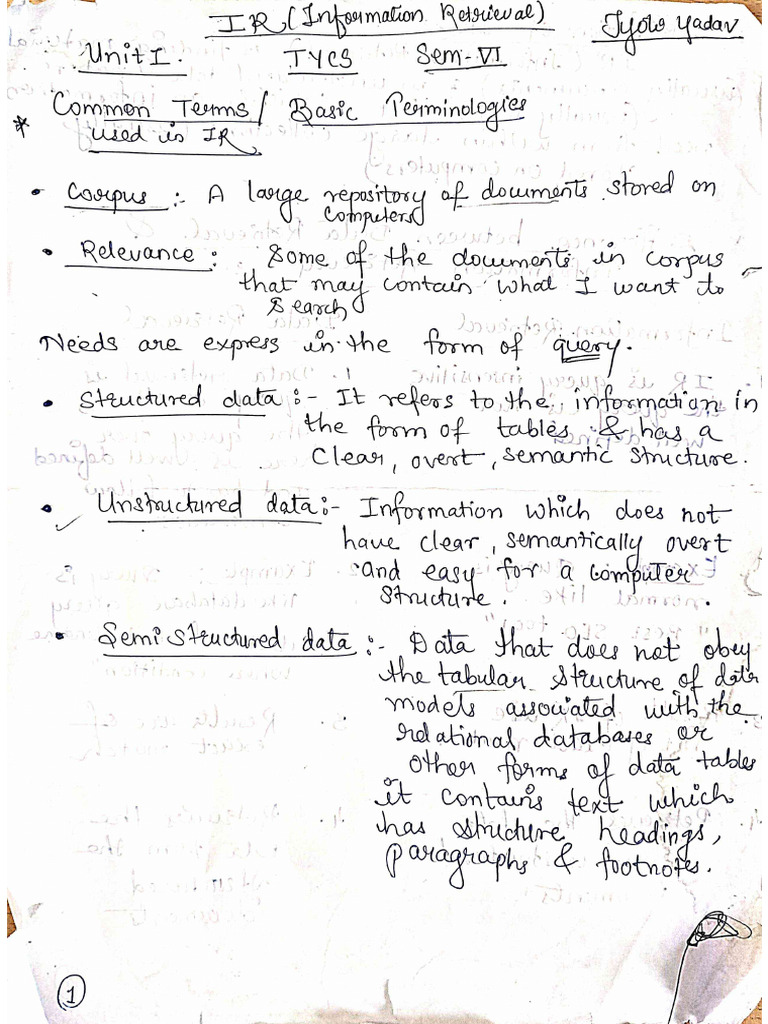 IR (Information Retrieval) Jyoti Yadav
Unit I. TYCS Sem-VI
* Common Terms / Basic Terminologies
used in IR
• Corpus :- A large repository of documents stored on
computers
• Relevance : Some of the documents in corpus
that may contain what I want to
search
Needs are express in the form of query.
• Structured data :- It refers to the information in
the form of tables & has a
clear, overt, semantic structure.
• Unstructured data :- Information which does not
have clear, semantically overt
and easy for a computer
structure.
• Semi structured data :- Data that does not obey
the tabular structure of data
models associated with the
relational databases or
other forms of data tables
it contains text which
has structure headings,
paragraphs & footnotes.
1